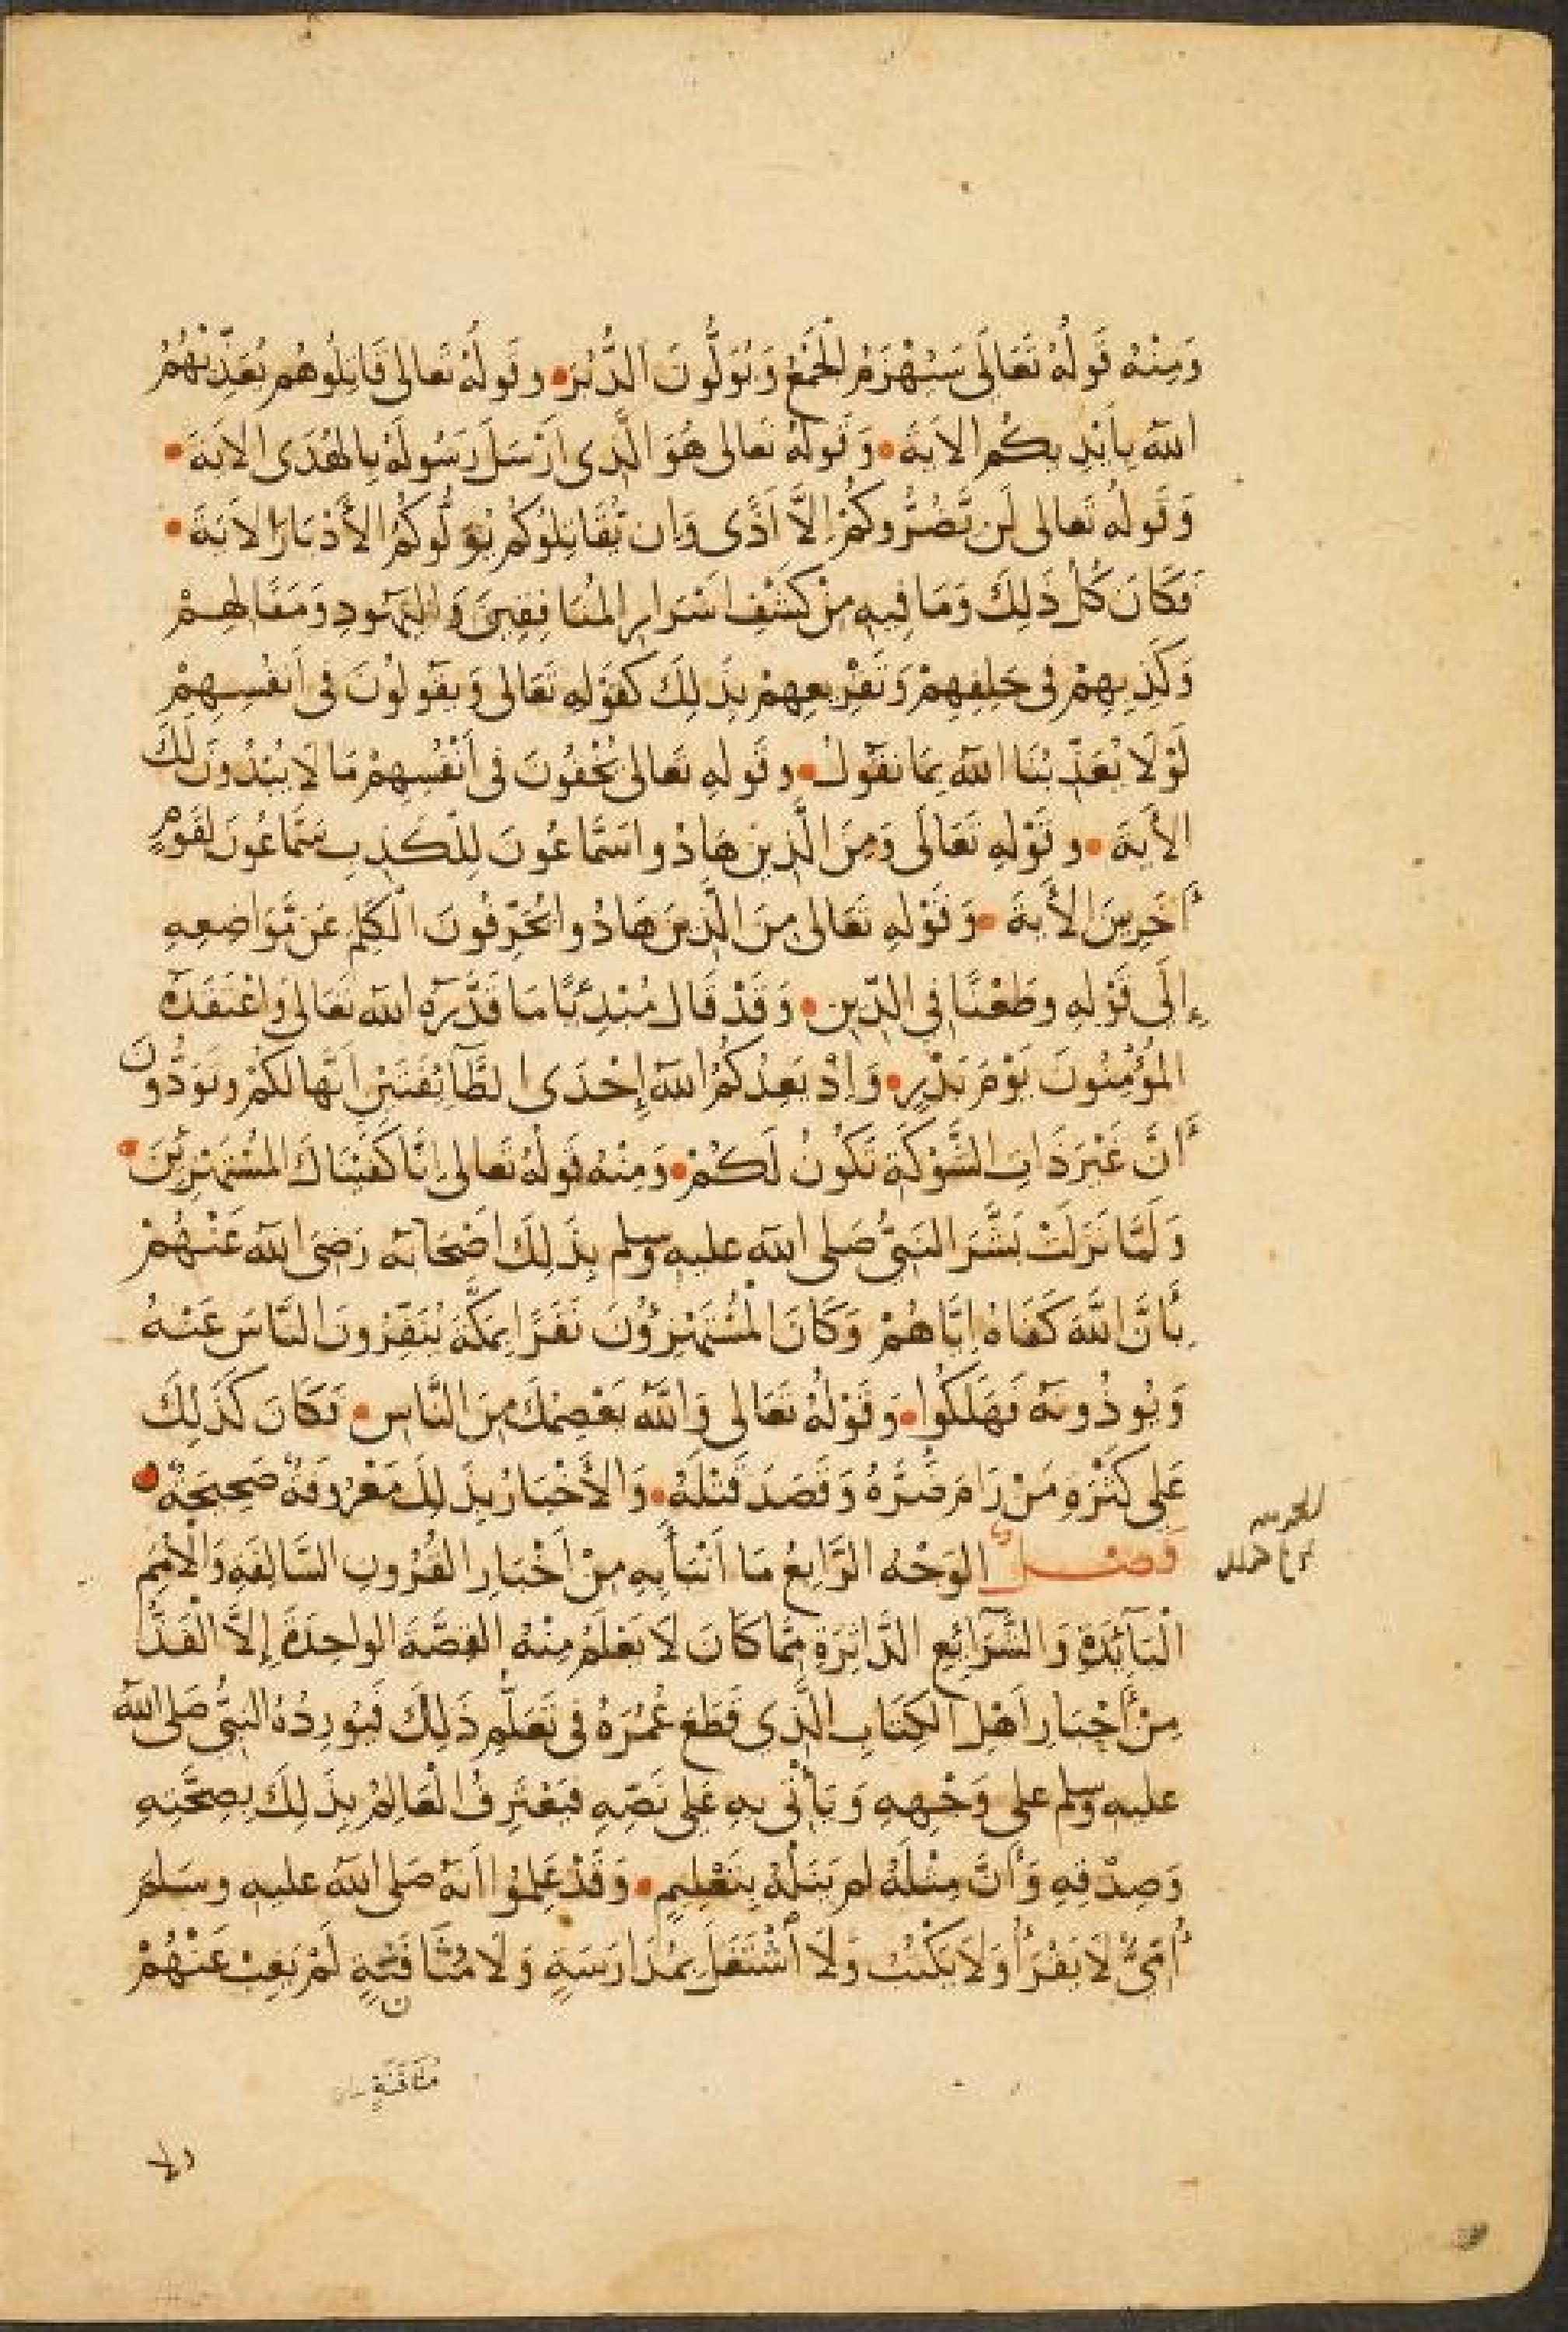 وَمِنْهُ قَوْلُهُ تَعَالَى سَيُهْزَمُ الْجَمْعُ وَيُوَلُّونَ الدُّبُرَ • وقَولُهُ تَعالى قَاتِلُوهُم يُعَذِّبْهُمُ
اللهُ بِأَيْدِيكُم الايَةَ • وَقَولُهُ تَعالى هُوَ الَّذِى اَرْسَلَ رَسُولَهُ بِالهُدَى الايَةَ •
وَقَولُهُ تَعالى لَن يَّضُرُّوكُمْ اِلَّا اَذًى وَاِن يُّقَاتِلُوكُم يُوَلُّوكُمُ الأَدْبَارَ الاَيَةَ •
فَكَانَ كُلُّ ذَلِكَ وَمَا فِيهِ مِنْ كَشْفِ اَسْرَارِ المُنَافِقِينَ وَاليَهُودِ وَمَقَالِهِمْ
وَكَذِبِهِمْ فى حَلِفِهِمْ وَتَقْرِيعِهِمْ بِذَلِكَ كَقَوْلِهِ تَعَالى وَيَقُولُونَ فى اَنفُسِهِمْ
لَوْلَا يُعَذِّبُنَا اللهُ بِمَا نَقُولُ • وقَولِهِ تَعالى يُخْفُونَ فى اَنْفُسِهِمْ مَا لَا يُبْدُونَ لَكَ
الأيَةَ • وقَوْلِهِ تَعَالَى وَمِنَ الَّذِينَ هَادُوا سَمَّاعُونَ لِلْكَذِبِ سَمَّاعُونَ لِقَوْمٍ
أخَرِينَ الأيَةَ • وَقَوْلِهِ تَعَالى مِنَ الَّذِينَ هَادُوا يُحَرِّفُونَ الْكَلِمَ عَن مَّوَاضِعِهِ
إِلَى قَوْلِهِ وطَعْنًا فِي الدِّينِ • وَقَدْ قَالَ مُبْدِئًا مَا قَدَّرَهُ اللهُ تَعَالى وَاعْتَقَدَهُ
المُؤْمِنُونَ يَوْمَ بَدْرٍ • وَاِذْ يَعِدُكُمُ اللهُ إِحْدَى الطَّائِفَتَيْنِ اَنَّهَا لَكُمْ وتَوَدُّونَ
أَنَّ غَيْرَ ذَاتِ الشَّوْكَةِ تَكُونُ لَكُمْ • وَمِنْهُ قَولُهُ تَعالى اِنَّا كَفَيْنَاكَ المُسْتَهْزِئِينَ •
وَلَمَّا نَزَلَتْ بَشَّرَ النَّبِىُّ صَلى الله عليه وسلم بِذَلِكَ اَصْحَابَهُ رَضِىَ الله عَنْهُمْ
بِأَنَّ اللَّهَ كَفَاهُ اِيَّاهُمْ وَكَانَ الْمُسْتَهْزِؤُنَ نَفَرًا بِمَكَّةَ يُنَفِّرُونَ النَّاسَ عَنْهُ
وَيُوذُونَهُ فَهَلَكُوا • وَقَوْلُهُ تَعَالى وَاللهُ يَعْصِمُكَ مِنَ النَّاسِ • فَكَانَ كَذَلِكَ
عَلى كَثْرَةِ مَنْ رَامَ ضَرَّهُ وَقَصَدَ قَتْلَهُ • وَالأَخْبَارُ بِذَلِكَ مَعْرُوفَةٌ صَحِيحَةٌ
فَصْلٌ الوَجْهُ الرَّابِعُ مَا اَنْبَأَ بِهِ مِنْ اَخْبَارِ القُرُونِ السَّالِفَةِ وَالْأُمَمِ
الْبَائِدَةِ وَالشَّرَائِعِ الدَّاثِرَةِ مِمَّا كَانَ لَا يَعْلَمُ مِنْهُ القِصَّةَ الواحِدَةَ إِلاَّ الْفَذُّ
مِنْ أَحْبَارِ اَهْلِ الكِتَابِ الَّذِى قَطَعَ عُمُرَهُ فى تَعَلُّمِ ذَلِكَ فَيُورِدُهُ النَّبِىُّ صَلى اللهُ
عليه وسلم على وَجْهِهِ وَيَأْتِى بِهِ عَلى نَصِّهِ فيَعْتَرِفُ الْعَالِمُ بِذَلِكَ بِصِحَّتِهِ
وَصِدْقِهِ وَأَنَّ مِثْلَهُ لم يَنَلْهُ بِتَعْلِيمٍ • وَقَدْ عَلِمُوا اَنَّهُ صَلى الله عليه وسَلم
أُمِّىٌّ لَا يَقْرَأُ وَلَا يَكْتُبُ وَلَا أشْتَغَلَ بِمُدَارَسَةٍ وَلَا مُثَافَنَةٍ لَمْ يَغِبْ عَنْهُمْ
مُثَافَنَةٍ
ولا